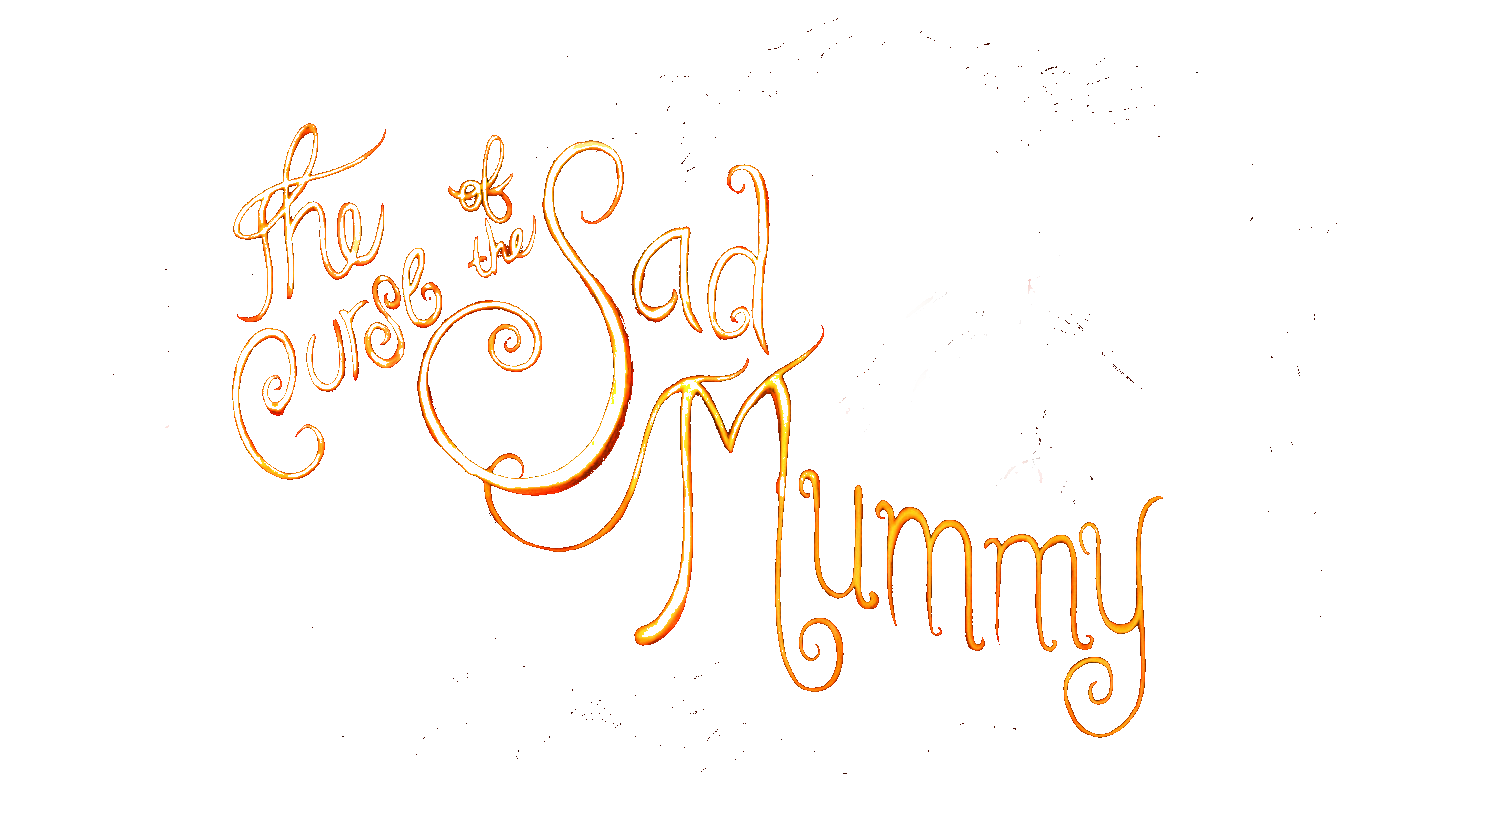 The
Curse of
the
Sad
Mummy